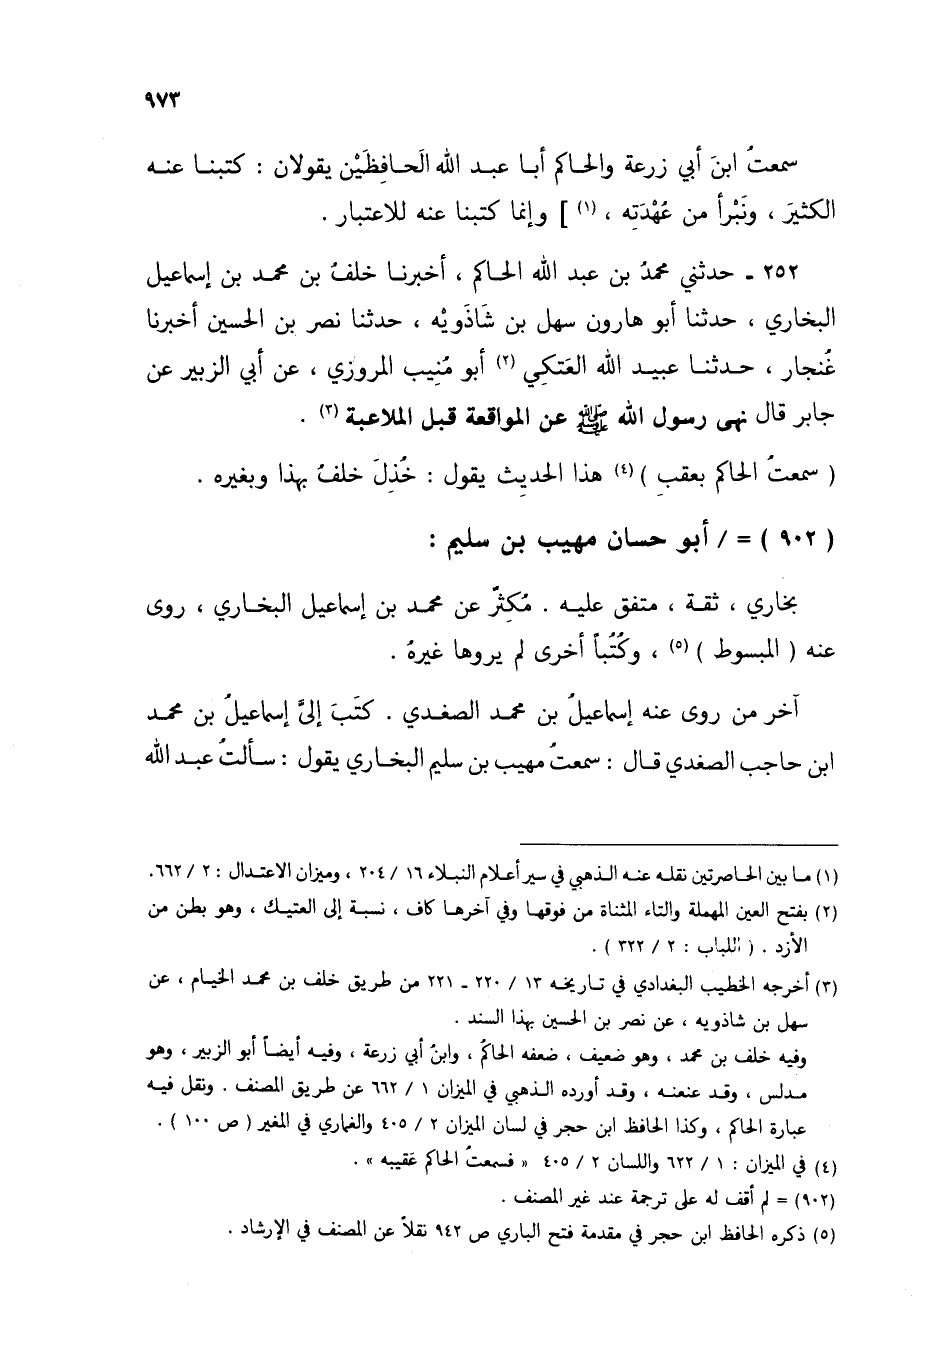 ٩٧٣
سمعتُ ابنَ أبي زرعة والحاكم أبا عبد الله الَحافِظَيْن يقولان : كتبنا عنه
الكثيَر ، ونَبْرأ من عُهْدَتِه ، (١) ] وإنما كتبنا عنه للاعتبار .
٢٥٢ ـ حدثني محمدُ بن عبد الله الحاكم ، أخبرنا خلفُ بن محمد بن إسماعيل
البخاري ، حدثنا أبو هارون سهل بن شَاذَويْه ، حدثنا نصر بن الحسين أخبرنا
غُنجار ، حدثنا عبيد الله العَتكِي (٢) أبو مُنِيب المروزي ، عن أبي الزبير عن
جابر قال نهى رسول الله ﷺ عن المواقعة قبل الملاعبة (٣) .
( سمعتُ الحاكم بعقبِ ) (٤) هذا الحديث يقول : خُذِلَ خلفُ بهذا وبغيره .
( ٩٠٢ ) = / أبو حسان مهيب بن سليم :
بخاري ، ثقة ، متفق عليه . مُكثِرٌ عن محمد بن إسماعيل البخاري ، روى
عنه ( المبسوط ) (٥) ، وكُتُباً أخرى لم يروها غيرهُ .
آخر من روى عنه إسماعيلُ بن محمد الصغدي . كتَبَ إليَّ إسماعيلُ بن محمد
ابن حاجب الصغدي قال : سمعتُ مهيب بن سليم البخاري يقول : سألتُ عبد الله
(١) ما بين الحاصرتين نقله عنه الذهبي في سير أعلام النبلاء ١٦ / ٢٠٤ ، وميزان الاعتدال : ٢ / ٦٦٢.
(٢) بفتح العين المهملة والتاء المثناة من فوقها وفي آخرها كاف ، نسبة إلى العتيك ، وهو بطن من
الأزد . ( اللباب : ٢ / ٣٢٢ ) .
(٣) أخرجه الخطيب البغدادي في تاريخه ١٣ / ٢٢٠ ـ ٢٢١ من طريق خلف بن محمد الخيام ، عن
سهل بن شاذويه ، عن نصر بن الحسين بهذا السند .
وفيه خلف بن محمد ، وهو ضعيف ، ضعفه الحاكمُ ، وابنُ أبي زرعة ، وفيه أيضاً أبو الزبير ، وهو
مدلس ، وقد عنعنه ، وقد أورده الذهبي في الميزان ١ / ٦٦٢ عن طريق المصنف . ونقل فيه
عبارة الحاكم ، وكذا الحافظ ابن حجر في لسان الميزان ٢ / ٤٠٥ والغماري في المغير ( ص ١٠٠ ) .
(٤) في الميزان : ١ / ٦٢٢ واللسان ٢ / ٤٠٥ « فسمعتُ الحاكم عَقيبه » .
(٩٠٢) = لم أقف له على ترجمة عند غير المصنف .
(٥) ذكره الحافظ ابن حجر في مقدمة فتح الباري ص ٩٤٢ نقلاً عن المصنف في الإرشاد .